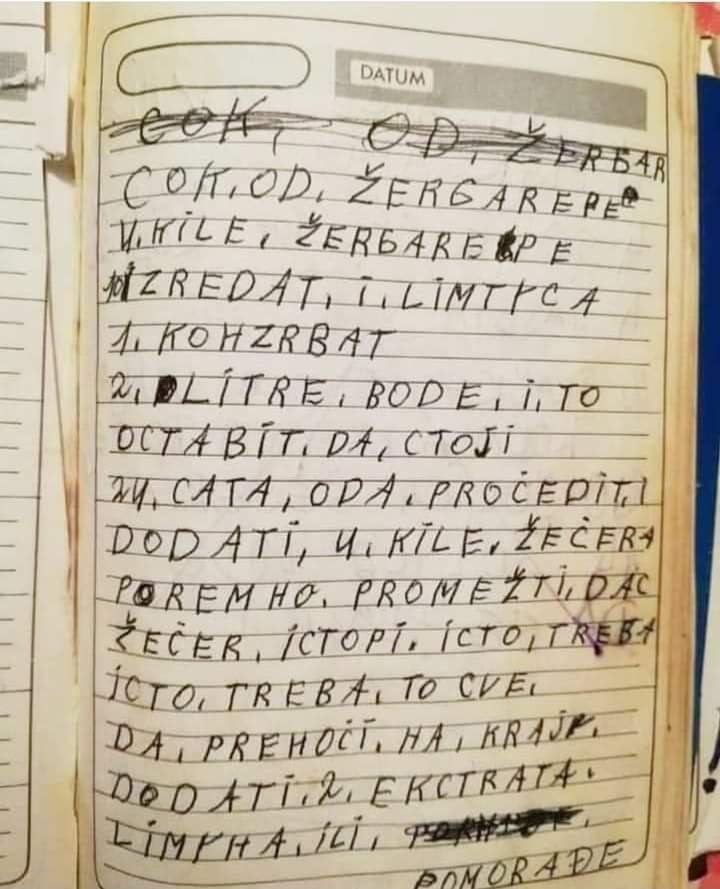 DATUM
COK, OD, ŽERБAR
COK.OD. ŽERБAREPE
4.KILE, ŽERБAREPE
10 IZREDAT, I, LIMTYCA
1. KOHZRBAT
2. LITRE, BODE, I, TO
OCTABIT. DA, CTOJI
24, CATA, ODA. PROČEDIT, I
DODATI, 4. KILE, ŽEČERA
POREMHO. PROMEŽTI, DAC
ŽEČER, ICTOPI. ICTO, TREBA
ICTO, TREBA, TO CVE.
DA, PREHOĆI, HA, KRAJY.
DODATI. 2, EKCTRATA.
LIMYHA, ILI,
POMORAĐE